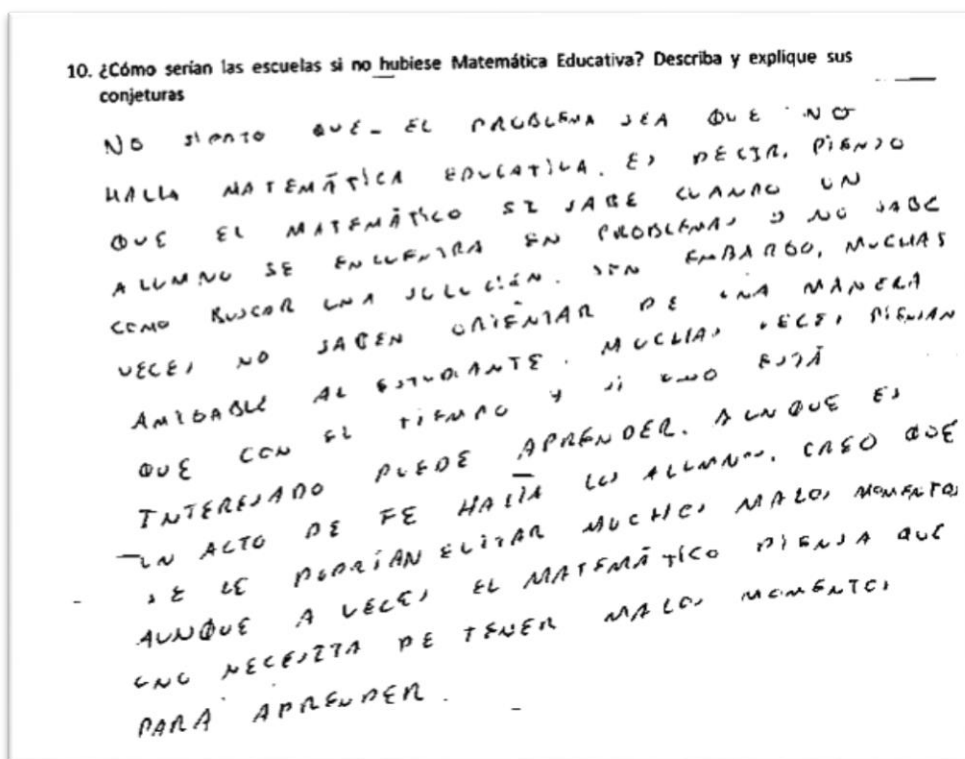 10. ¿Cómo serían las escuelas si no hubiese Matemática Educativa? Describa y explique sus
conjeturas
NO SIENTO QUE EL PROBLEMA SEA QUE NO
HALLA MATEMÁTICA EDUCATIVA. ES DECIR, PIENSO
QUE EL MATEMÁTICO SI SABE CUANDO UN
ALUMNO SE ENCUENTRA EN PROBLEMAS Y NO SABE
COMO BUSCAR UNA SOLUCIÓN. SIN EMBARGO, MUCHAS
VECES NO SABEN ORIENTAR DE UNA MANERA
AMIGABLE AL ESTUDIANTE. MUCHAS VECES PIENSAN
QUE CON EL TIEMPO Y SI UNO ESTÁ
INTERESADO PUEDE APRENDER. AUNQUE ES
UN ACTO DE FE HACIA LOS ALUMNOS, CREO QUE
SE LE PODRÍAN EVITAR MUCHOS MALOS MOMENTOS
AUNQUE A VECES EL MATEMÁTICO PIENSA QUE
UNO NECESITA DE TENER MALOS MOMENTOS
PARA APRENDER.